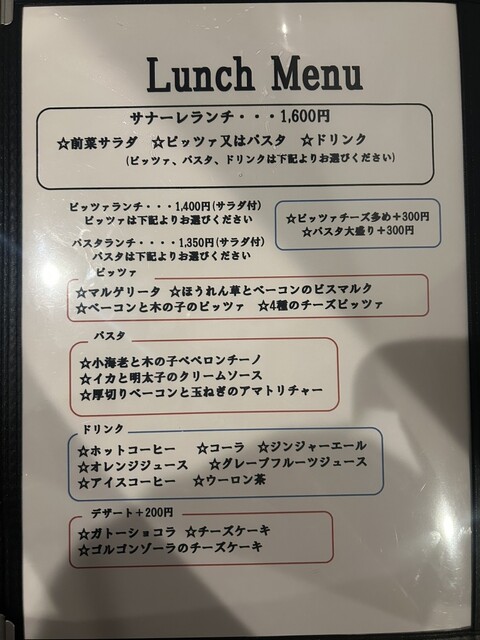 Lunch Menu
サナーレランチ・・・1,600円
☆前菜サラダ ☆ピッツァ又はパスタ ☆ドリンク
(ピッツァ、パスタ、ドリンクは下記よりお選びください)
ピッツァランチ・・・1,400円(サラダ付)
ピッツァは下記よりお選びください
☆ピッツァチーズ多め+300円
☆パスタ大盛り+300円
パスタランチ・・・・1,350円(サラダ付)
パスタは下記よりお選びください
ピッツァ
☆マルゲリータ ☆ほうれん草とベーコンのビスマルク
☆ベーコンと木の子のピッツァ ☆4種のチーズピッツァ
パスタ
☆小海老と木の子ペペロンチーノ
☆イカと明太子のクリームソース
☆厚切りベーコンと玉ねぎのアマトリチャー
ドリンク
☆ホットコーヒー ☆コーラ ☆ジンジャーエール
☆オレンジジュース ☆グレープフルーツジュース
☆アイスコーヒー ☆ウーロン茶
デザート+200円
☆ガトーショコラ ☆チーズケーキ
☆ゴルゴンゾーラのチーズケーキ